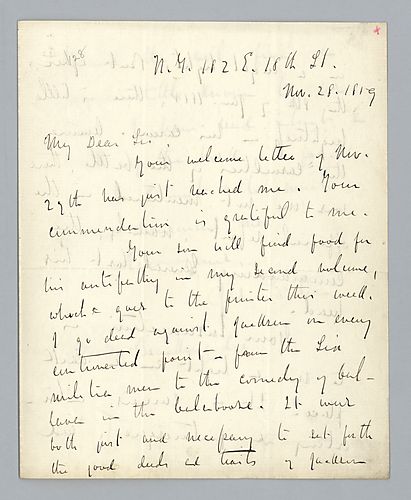 N.Y. 182 E. 18th St.
Nov. 28. 1859
My Dear Sir:
Your welcome letter of Nov.
27th has just reached me. Your
commendation is grateful to me.
Your son will find food for
his antipathy in my second volume,
which goes to the printer this week.
I go dead against Jackson on every
controverted point — from the Six
militia men to the comedy of Cal-
lava in the calaboose. It was
both just and necessary to set forth
the good deeds and traits of Jackson